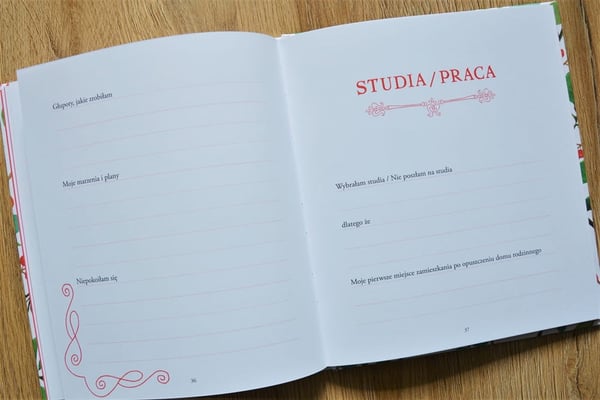 Głupoty, jakie zrobiłam
Moje marzenia i plany
Niepokoiłam się
36
STUDIA / PRACA
Wybrałam studia / Nie poszłam na studia
dlatego że
Moje pierwsze miejsce zamieszkania po opuszczeniu domu rodzinnego
37